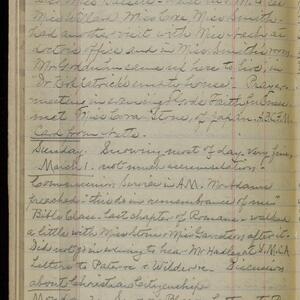 Miss Clark, Miss Coxe, Miss Smith.
had another visit with Miss at
doctor's office and in Miss Smith's room
Mr Goodwin came up here to live, in
Dr Kirkpatrick's empty house. Prayer
meeting in evening. God's Faith in Men.
met Miss Cora Stone, of Japan A.B.C.F.M.
Card from Nette.
Sunday. Snowing most of day, very fine,
March 1. not much accumulation.
Communion Service in A.M. Mr Adams
preached "this do in remembrance of me"
Bible Class. Last chapter of Romans. walked
a little with Miss Stone & Miss Garretson after it.
Did not go in evening to hear Mr Y.M.C.A.
Letters to Pater & Wilder. Discussion
about Christian Citizenship